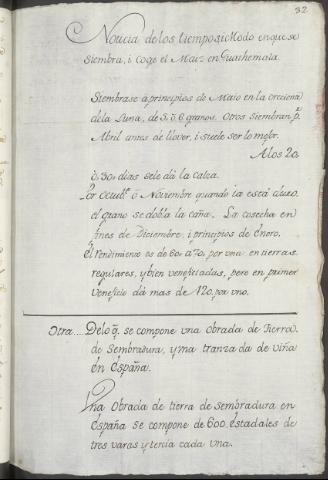 32
Noticia de los tiempos, i Modo en que se
siembra, i coge el Maiz en Guathemala.
Siembrase a principios de Maio en la creciente
de la Luna, de 5. ò 6 granos. Otros siembran p.r
Abril antes de llover, i suele ser lo mejor.
A los 20,
ò 30 dias sele dà la calca.
Por Octub.e ò Noviembre quando ia està duro
el grano se dobla la caña. La cosecha en
fines de Diciembre, i principios de Enero.
El rendimiento es de 60 a 70, por una en tierras
regulares, y bien veneficiadas, pero en primer
veneficio dà mas de 120, por uno.
Otra.... Delo q. se compone vna obrada de tierra
de sembradura, y vna tranzada de viña
en España.
Una obrada de tierra de sembradura en
España se compone de 600 Estadales de
tres varas y tercia cada vna.